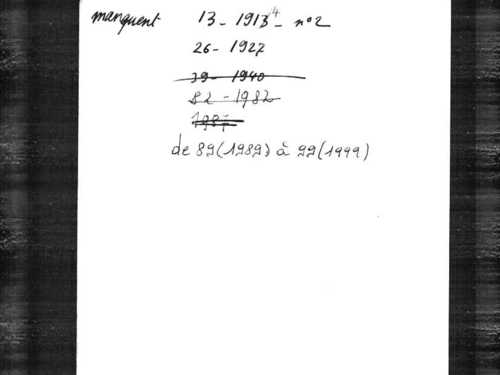 manquent 13 - 1913 4 - n°2
26 - 1927
39 - 1940
82 - 1982
1987
de 89 (1989) à 99 (1999)